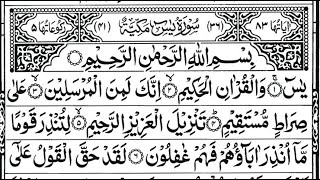 اٰيَاتُهَا ٨٣ (٣٦) سُوْرَةُ يٰسٓ مَكِّيَّةٌ (٤١) رُكُوْعَاتُهَا ٥
بِسْمِ اللّٰهِ الرَّحْمٰنِ الرَّحِيْمِ
يٰسٓ ۝١ وَالْقُرْاٰنِ الْحَكِيْمِ ۝٢ اِنَّكَ لَمِنَ الْمُرْسَلِيْنَ ۝٣ عَلٰى
صِرَاطٍ مُّسْتَقِيْمٍ ۝٤ تَنْزِيْلَ الْعَزِيْزِ الرَّحِيْمِ ۝٥ لِتُنْذِرَ قَوْمًا
مَّاۤ اُنْذِرَ اٰبَآؤُهُمْ فَهُمْ غٰفِلُوْنَ ۝٦ لَقَدْ حَقَّ الْقَوْلُ عَلٰۤى